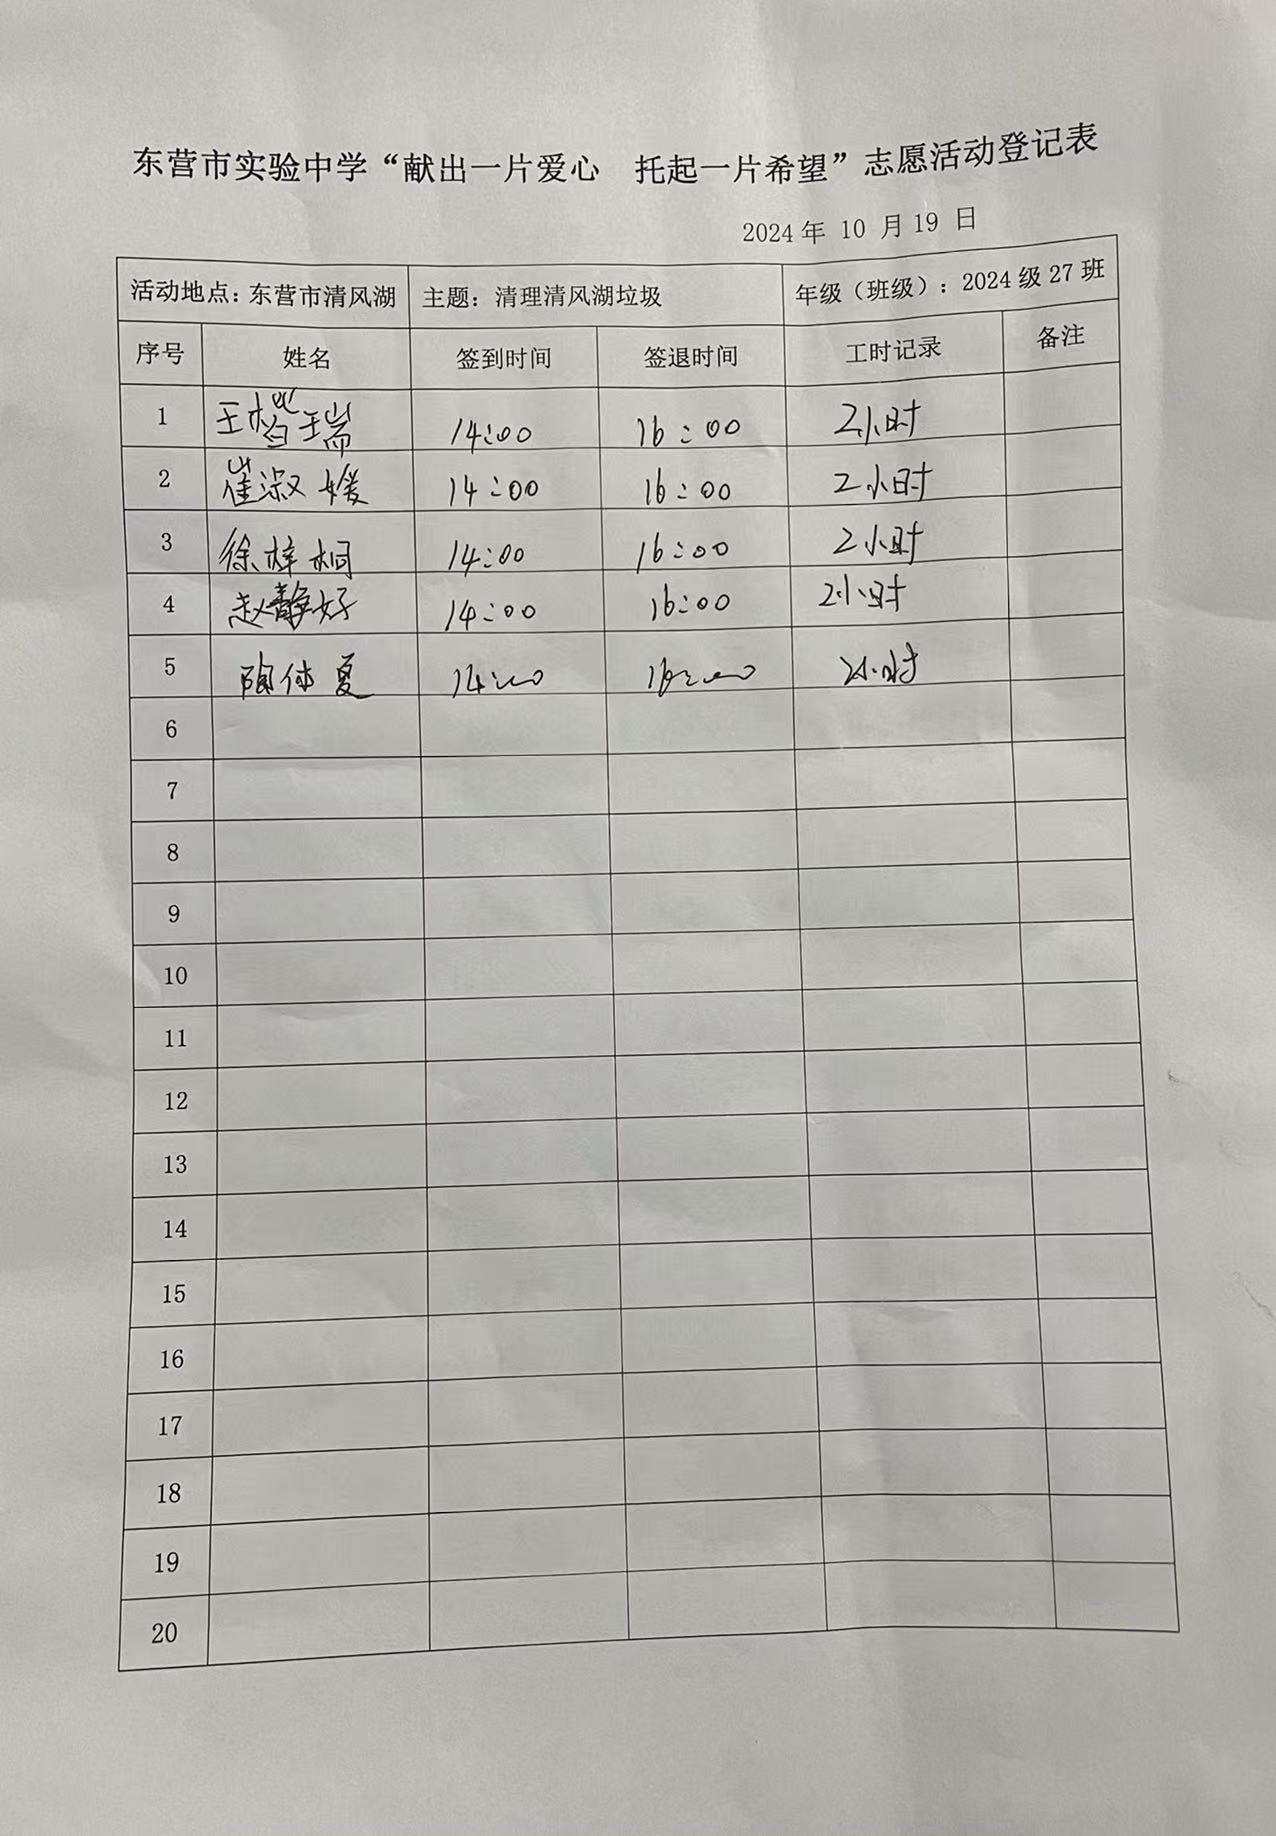 东营市实验中学“献出一片爱心 托起一片希望”志愿活动登记表
2024年 10 月 19 日
活动地点：东营市清风湖 主题：清理清风湖垃圾 年级（班级）：2024级27班
序号 姓名 签到时间 签退时间 工时记录 备注
1 王楷瑞 14:00 16:00 2小时
2 崔淑媛 14:00 16:00 2小时
3 徐梓桐 14:00 16:00 2小时
4 赵静好 14:00 16:00 2小时
5 陶 夏 14:00 16:00 2小时
6
7
8
9
10
11
12
13
14
15
16
17
18
19
20